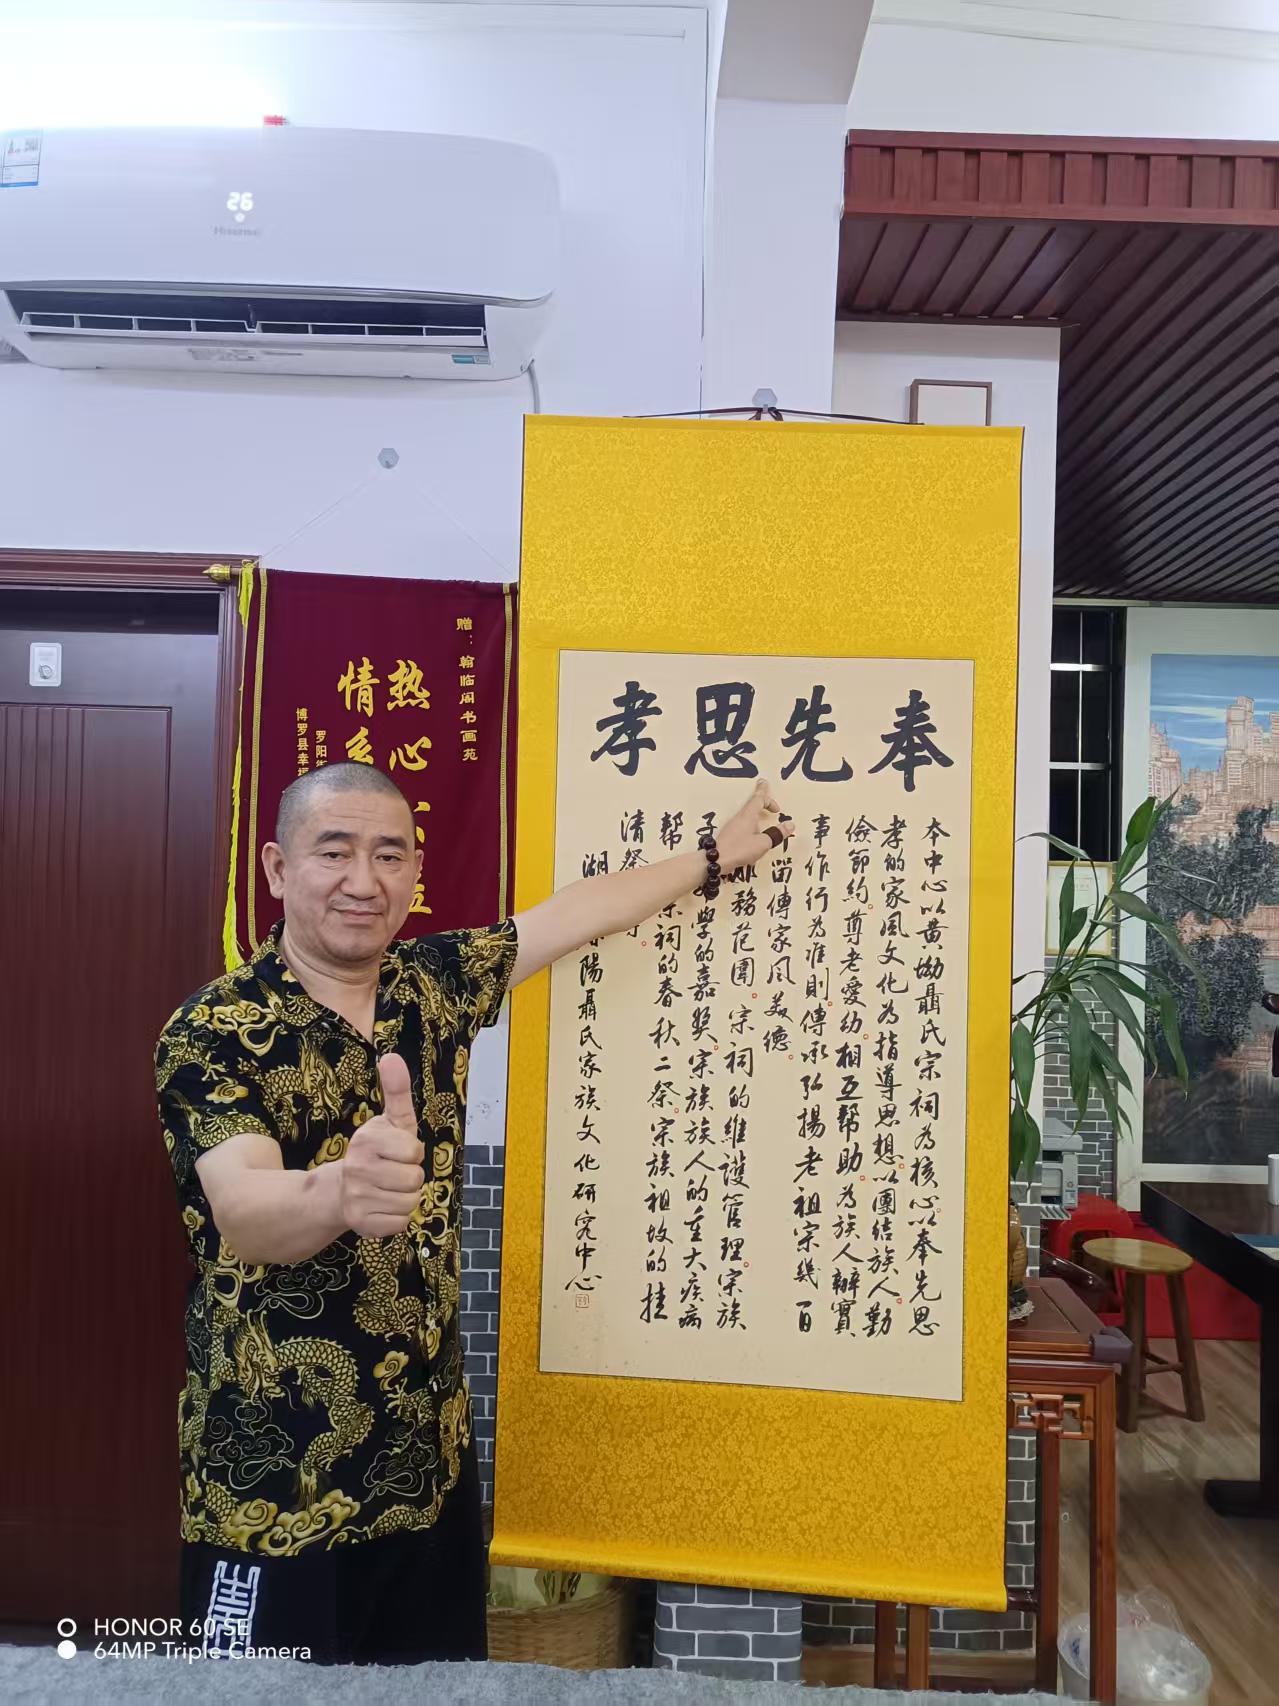 26
Hisense
赠：翰临阁书画苑
热心
情系
罗阳街
博罗县幸福
奉先思孝
本中心以黄坳聶氏宗祠为核心以奉先思
孝的家風文化为指導思想以團结族人勤
儉節約尊老愛幼相互帮助为族人辦實
事作行为准則傳承弘揚老祖宗幾百
年留傳家风美德
服務范圍宗祠的維護管理宗族
子 學的嘉奖宗族族人的重大疾病
帮 宗祠的春秋二祭宗族祖坟的挂
清祭
湖 陽聶氏家族文化研究中心
HONOR 60 SE
64MP Triple Camera